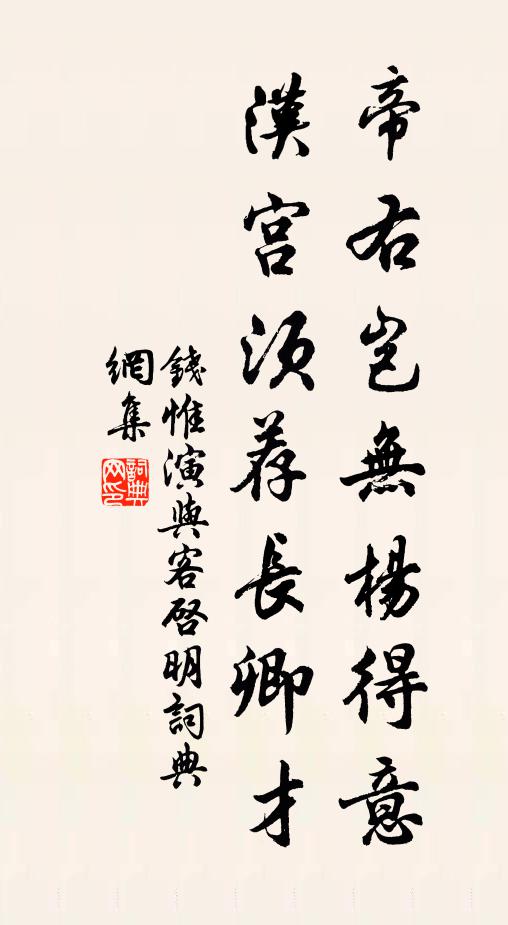 帝右岂無楊得意
漢宮須荐長卿才
錢惟演與客啓明詞典
網集
詞典網印